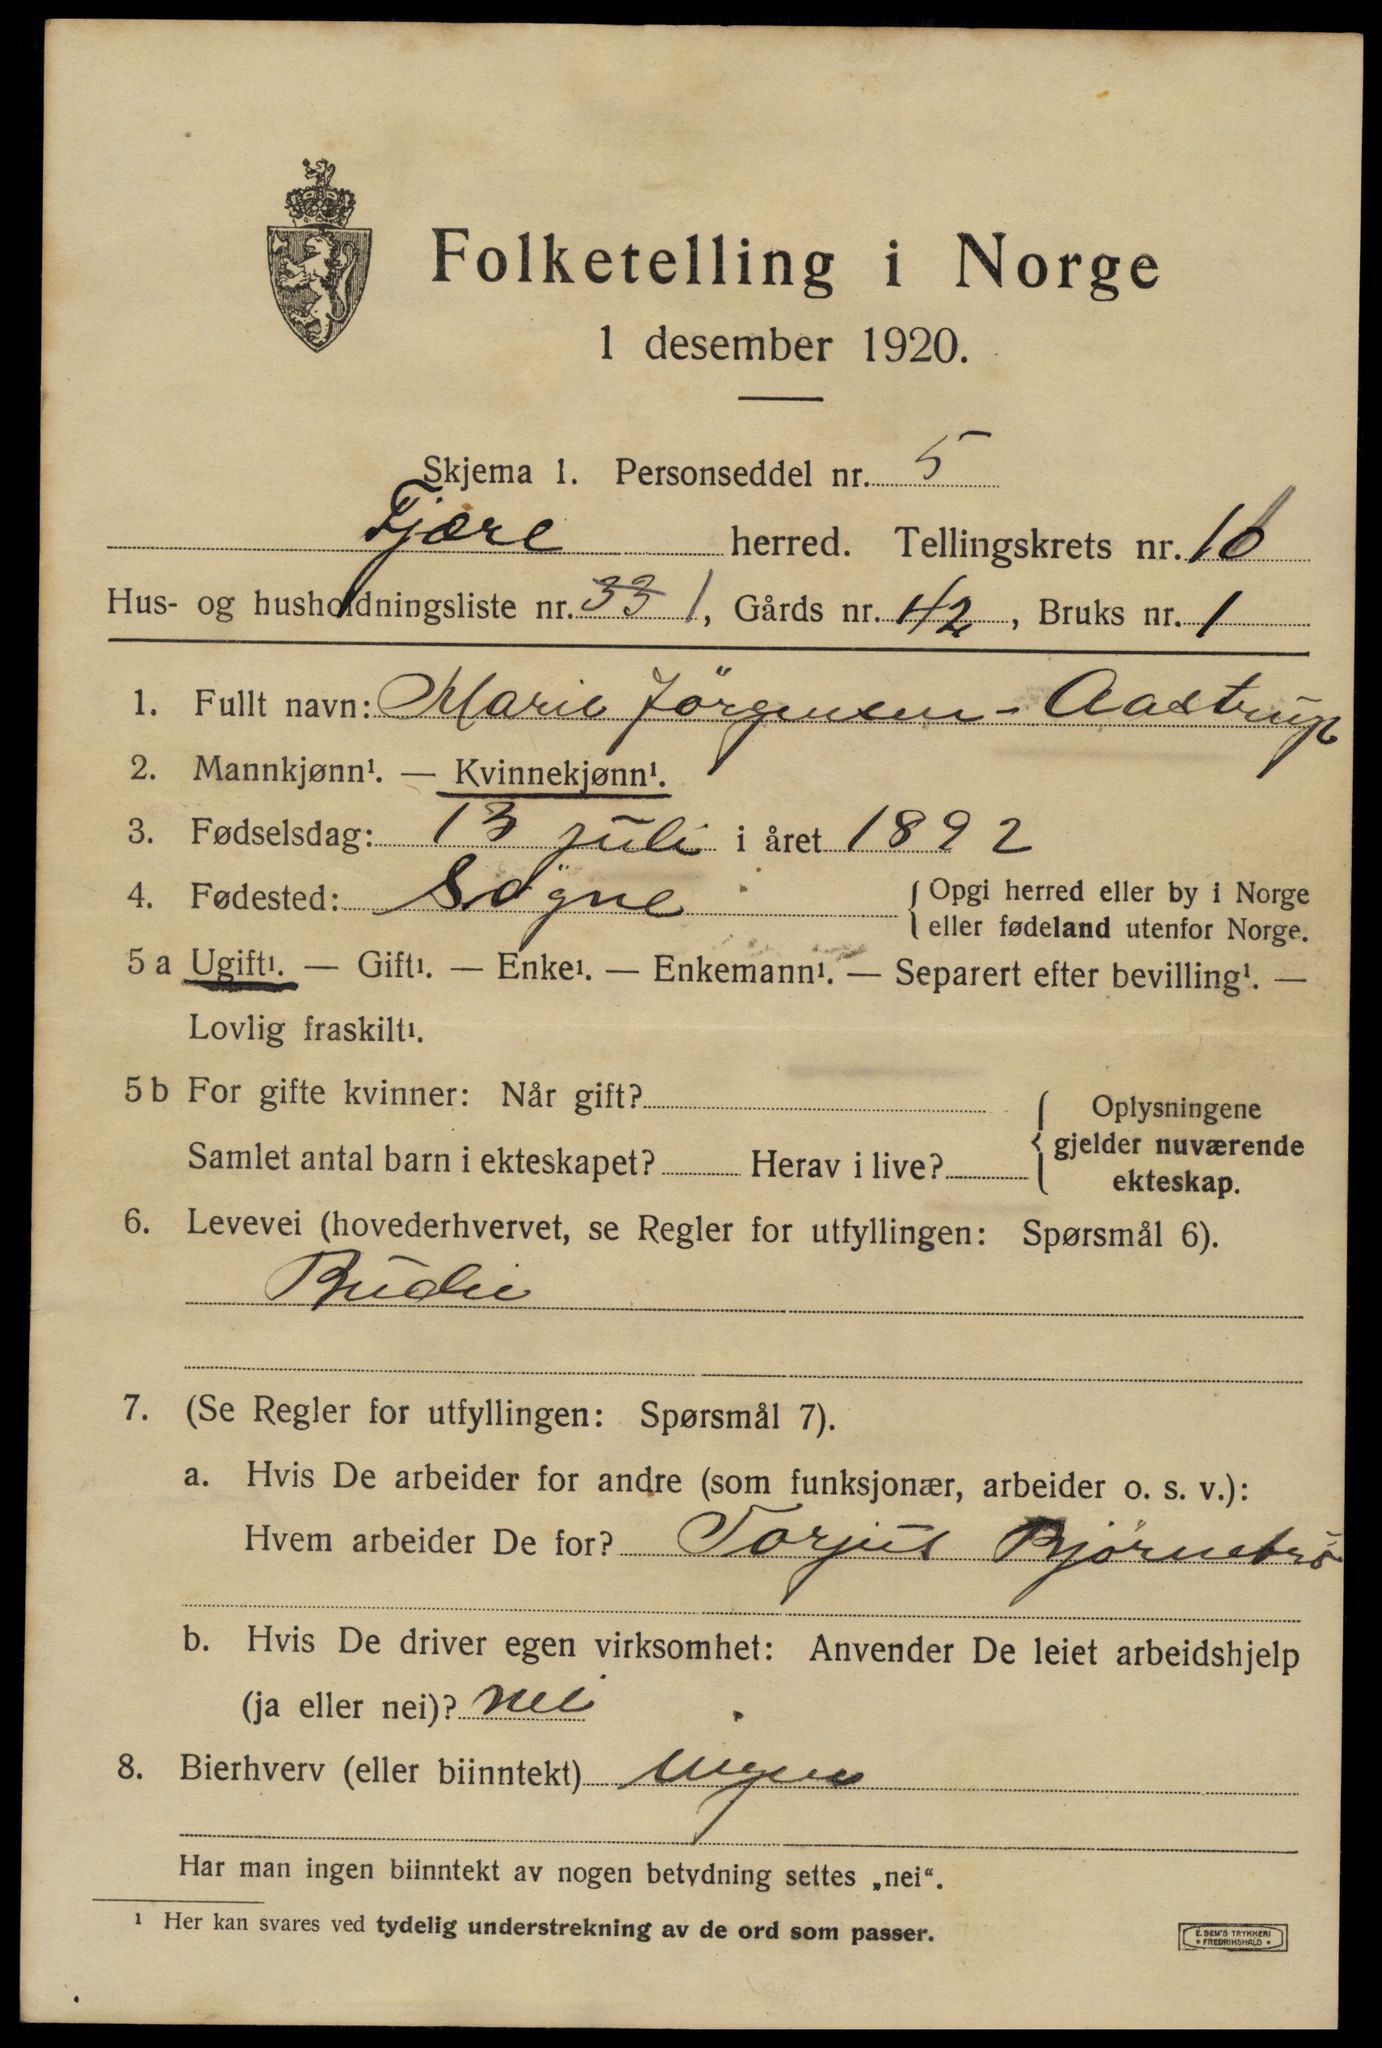 Folketelling i Norge
1 desember 1920.
Skjema 1. Personseddel nr. 5
Fjære herred. Tellingskrets nr. 16
Hus- og husholdningsliste nr. 33 1, Gårds nr. 42, Bruks nr. 1
1. Fullt navn: Marie Jörgensen - Aastrup
2. Mannkjønn¹. — Kvinnekjønn¹.
3. Fødselsdag: 13 juli i året 1892
4. Fødested: Søgne { Opgi herred eller by i Norge
eller fødeland utenfor Norge.
5 a Ugift¹. — Gift¹. — Enke¹. — Enkemann¹. — Separert efter bevilling¹. —
Lovlig fraskilt¹.
5 b For gifte kvinner: Når gift?
Samlet antal barn i ekteskapet? Herav i live?
{ Oplysningene
gjelder nuværende
ekteskap.
6. Levevei (hovederhvervet, se Regler for utfyllingen: Spørsmål 6).
Budeie
7. (Se Regler for utfyllingen: Spørsmål 7).
a. Hvis De arbeider for andre (som funksjonær, arbeider o. s. v.):
Hvem arbeider De for? Torjus Bjørnebrö
b. Hvis De driver egen virksomhet: Anvender De leiet arbeidshjelp
(ja eller nei)? nei
8. Bierhverv (eller biinntekt) ingen
Har man ingen biinntekt av nogen betydning settes „nei“.
¹ Her kan svares ved tydelig understrekning av de ord som passer.
E. SEM'S TRYKKERI
• FREDRIKSHALD •